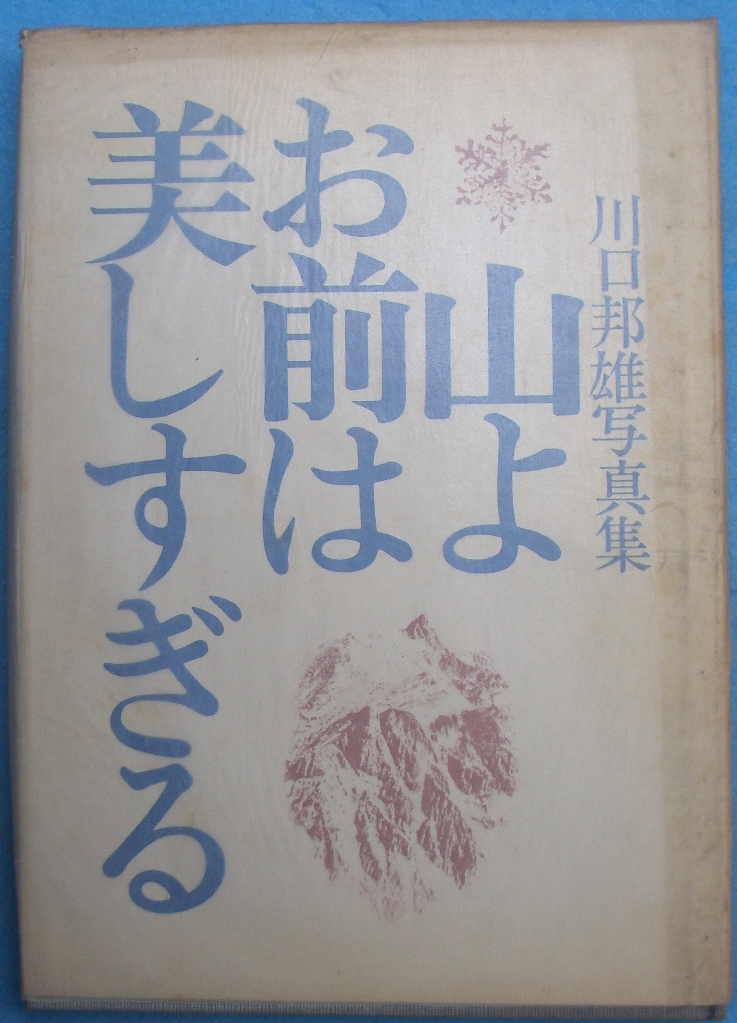 川口邦雄写真集
山よ
お前は
美しすぎる